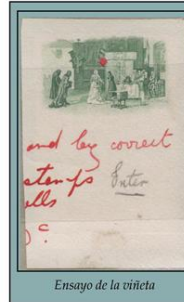 and by correct
stamps Enter
lls
c
Ensayo de la viñeta